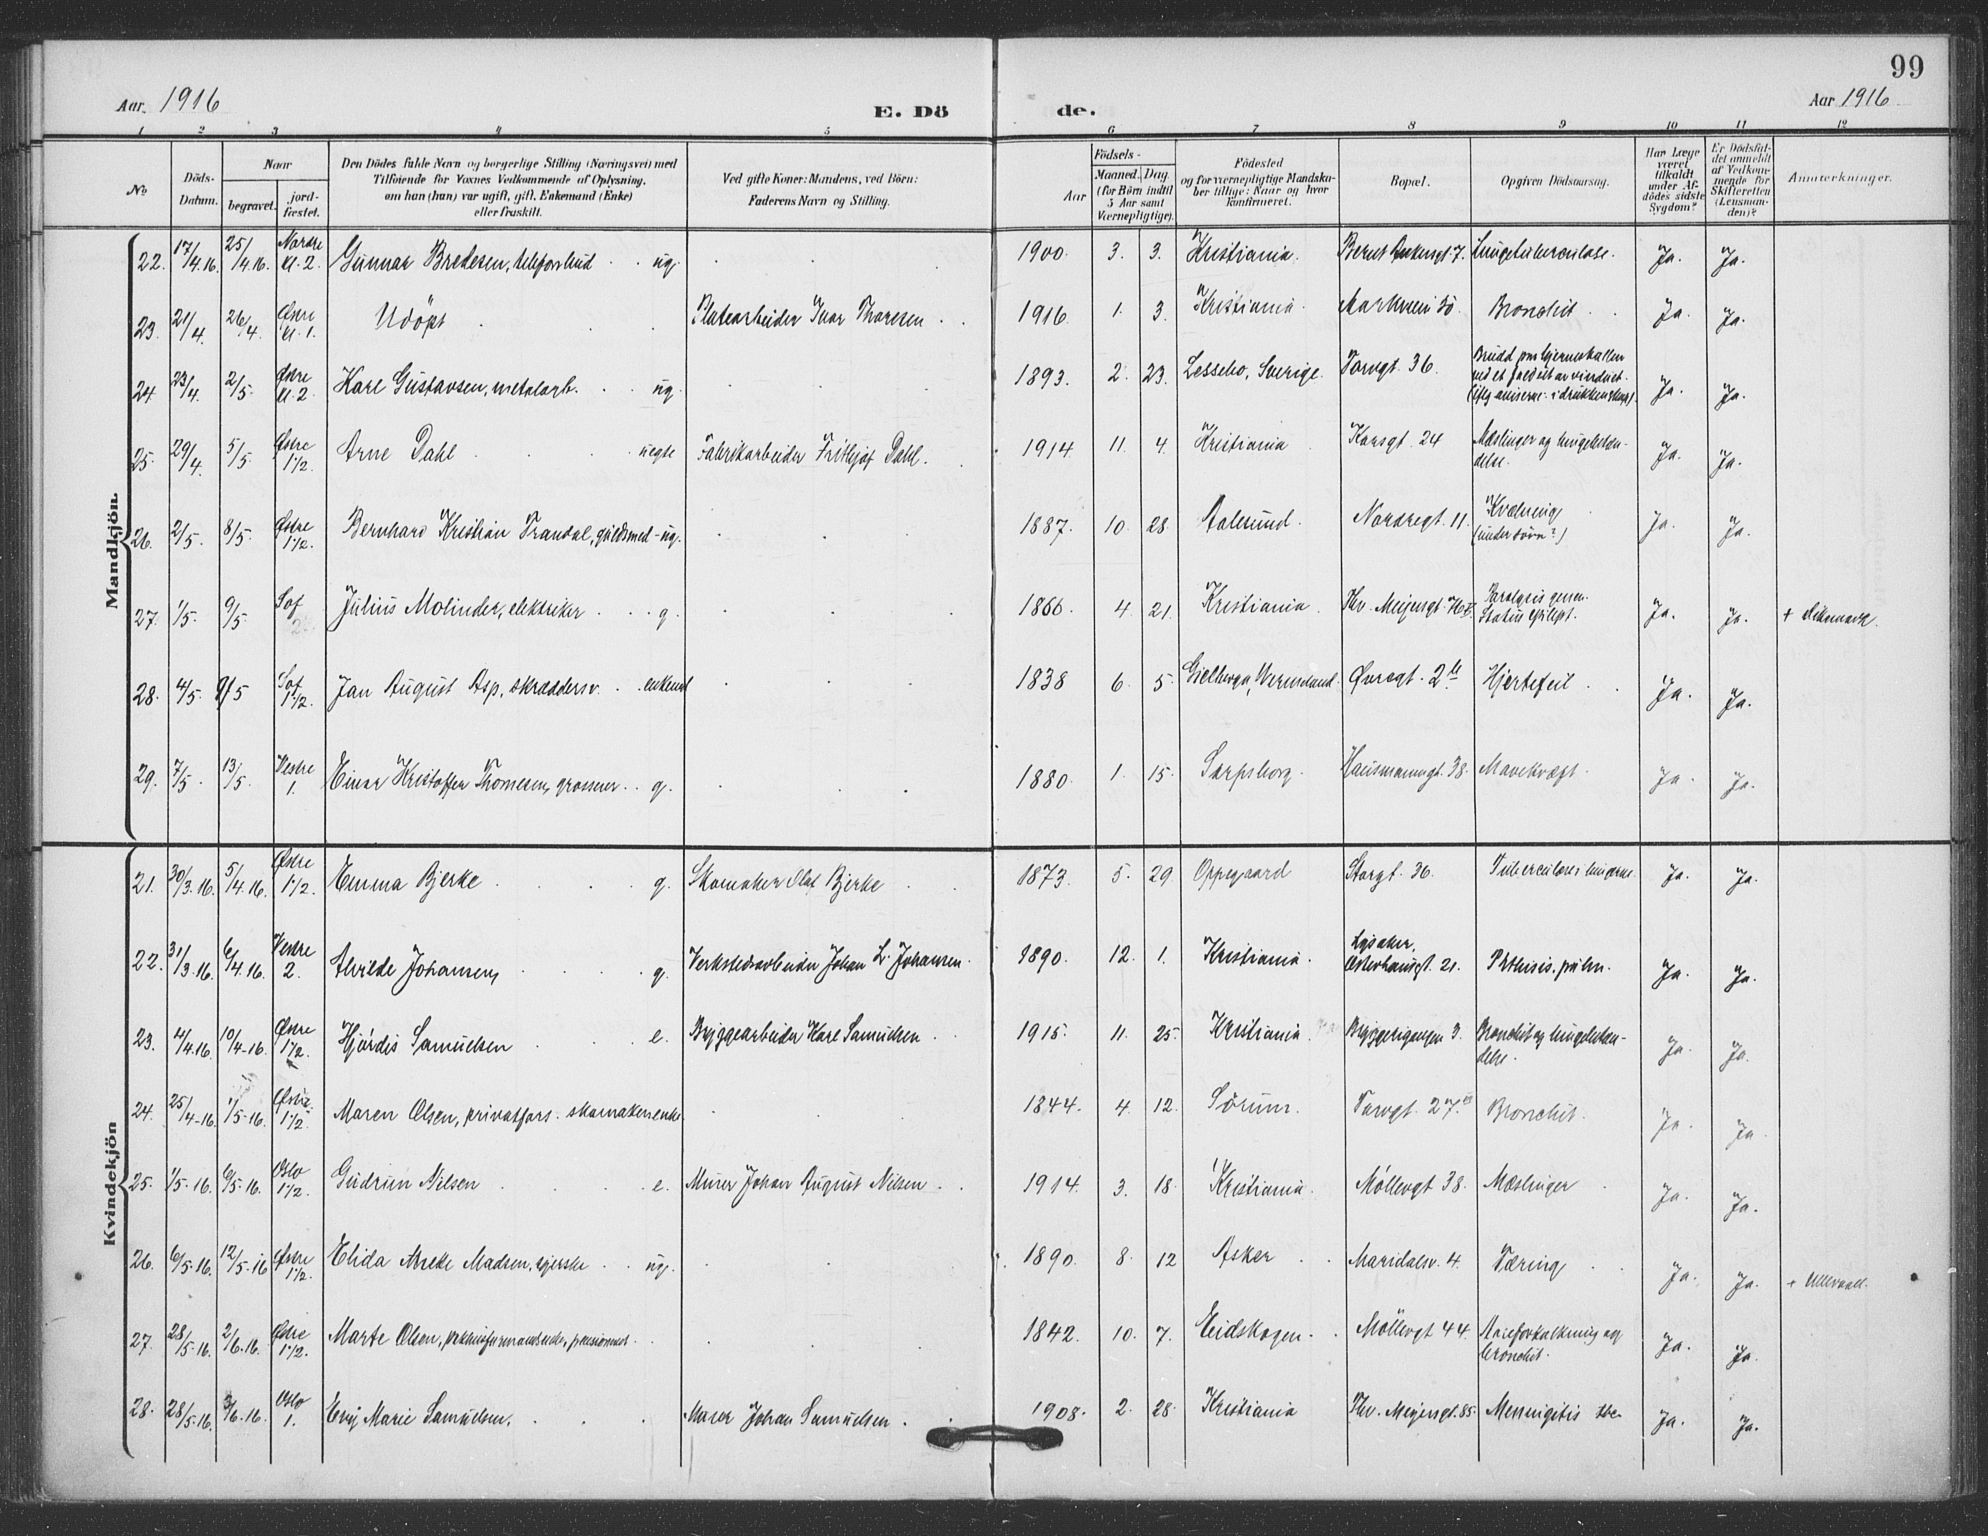 99
Aar. 1916 E. Dö de. Aar 1916
1 2 3 4 5 6 7 8 9 10 11 12
No Döds-Datum. Naar begravet. jord-fæstet. Den Dödes fulde Navn og borgerlige Stilling (Næringsvei) med Tilföiende for Voxnes Vedkommende af Oplysning, om han (hun) var ugift, gift, Enkemand (Enke) eller fraskilt. Ved gifte Koner: Mandens, ved Börn: Faderens Navn og Stilling. Aar Födsels- Maaned. Dag. (for Börn indtil 5 Aar samt Værnepligtige). Födested og for værnepligtige Mandskaber tillige: Naar og hvor konfirmeret. Bopæl. Opgiven Dödsaarsag. Har Læge været tilkaldt under Afdödes sidste Sygdom? Er Dödsfaldet anmeldt af Vedkommende for Skifteretten (Lensmanden)? Anmærkninger.
Mandkjön.
22. 17/4.16. 25/4.16. Nordre kl. 2. Gunnar Bredesen, telefonbud ug. 1900. 3. 3. Kristiania. Bernt Ankersgt. 7. Lungetuberculose. Ja. Ja.
23. 21/4. 26/4. Østre kl. 1. Udöpt Platearbeider Ivar Thoresen 1916. 1. 3. Kristiania. Markveien 30. Bronchit Ja. Ja.
24 23/4. 2/5. Østre kl. 2 Karl Gustavsen, metalarb. ug. 1893. 2. 23. Lessebo, Sverige. Torvgt. 36 Brudd paa hjerneskallen ved et fald ut av vinduet. (iflg aviserne i drukkenskap). Ja. Ja.
25. 29/4. 5/5. Østre 1 1/2. Arne Dahl uegte Fabrikarbeider Frithjof Dahl. 1914 11. 4. Kristiania Korsgt. 24 Mæslinger og lungebetændelse. Ja. Ja.
26. 2/5. 8/5. Østre 1 1/2. Bernhard Kristian Trandal, guldsmed - ug. 1887. 10. 28. Aalesund. Nordregt. 11. Kvælning (under søvn?) Ja. Ja.
27. 1/5. 9/5. Sof Julius Molinder, elektriker g. 1866. 4 21. Kristiania. Thv. Meijersgt. Paralysis gener. Status epilept. Ja. Ja. + Dikemark.
28. 4/5. 9/5 Sof 1 1/2. Jan August Asp, skræddersv. enkemd 1838 6. 5. Gielberga, Wermland. Øvregt. 2 b Hjertefeil Ja. Ja.
29. 7/5. 13/5. Vestre 1. Einar Kristoffer Thomesen, grosserer g. 1880. 1. 15. Sarpsborg. Hausmannsgt. 38. Mavekræft. Ja. Ja.
Kvindekjön
21. 30/3.16. 5/4.16. Østre 1 1/2. Emma Bjerke g. Skomaker Olaf Bjerke 1873. 5. 29. Oppegaard Storgt. 36. Tuberculose i lungerne. Ja. Ja.
22. 31/3.16. 6/4.16. Vestre 2. Alvilde Johansen, g. Verkstedsarbeider Johan L. Johansen. 1890. 12. 1. Kristiania. Lysaker. Osterhausgt. 21. Phthisis. pulm. Ja. Ja.
23. 4/4.16. 10/4-16. Østre 1 1/2. Hjördis Samuelsen e. Byggearbeider Karl Samuelsen 1915. 11. 25. Kristiania Byggeriganger 3. Bronchit og lungebetændelse. Ja. Ja.
24. 25/4-16. 1/5-16. Østre 1 1/2. Maren Olsen, privatfors. skomakerenke 1844. 4. 12. Sörum. Torvgt. 27. Bronchit. Ja. Ja.
25. 1/5-16. 6/5-16. Oslo 1 1/2. Gudrun Nilsen e. Murer Johan August Nilsen 1914. 3. 18. Kristiania. Møllergt 38. Mæslinger Ja. Ja.
26. 6/5-16. 12/5-16 Østre 1 1/2. Elida Mreke Madsen, syerske ug. 1890. 8. 12 Asker Maridalsv. 4. Tæring Ja. Ja. + Ullevaal.
27. 28/5-16. 2/6.16. Østre 1 1/2. Marte Olsen, 1842. 10. 7. Eidskogen. Möllergt 44. Areforkalkning og bronchit. Ja. Ja.
28. 28/5.16. 3/6.16. Oslo 1. Evy Marie Samuelsen. Murer Johan Samuelsen 1908. 2. 28. Kristiania Thv. Meijersgt. 85. Meningitis tbc Ja. Ja.